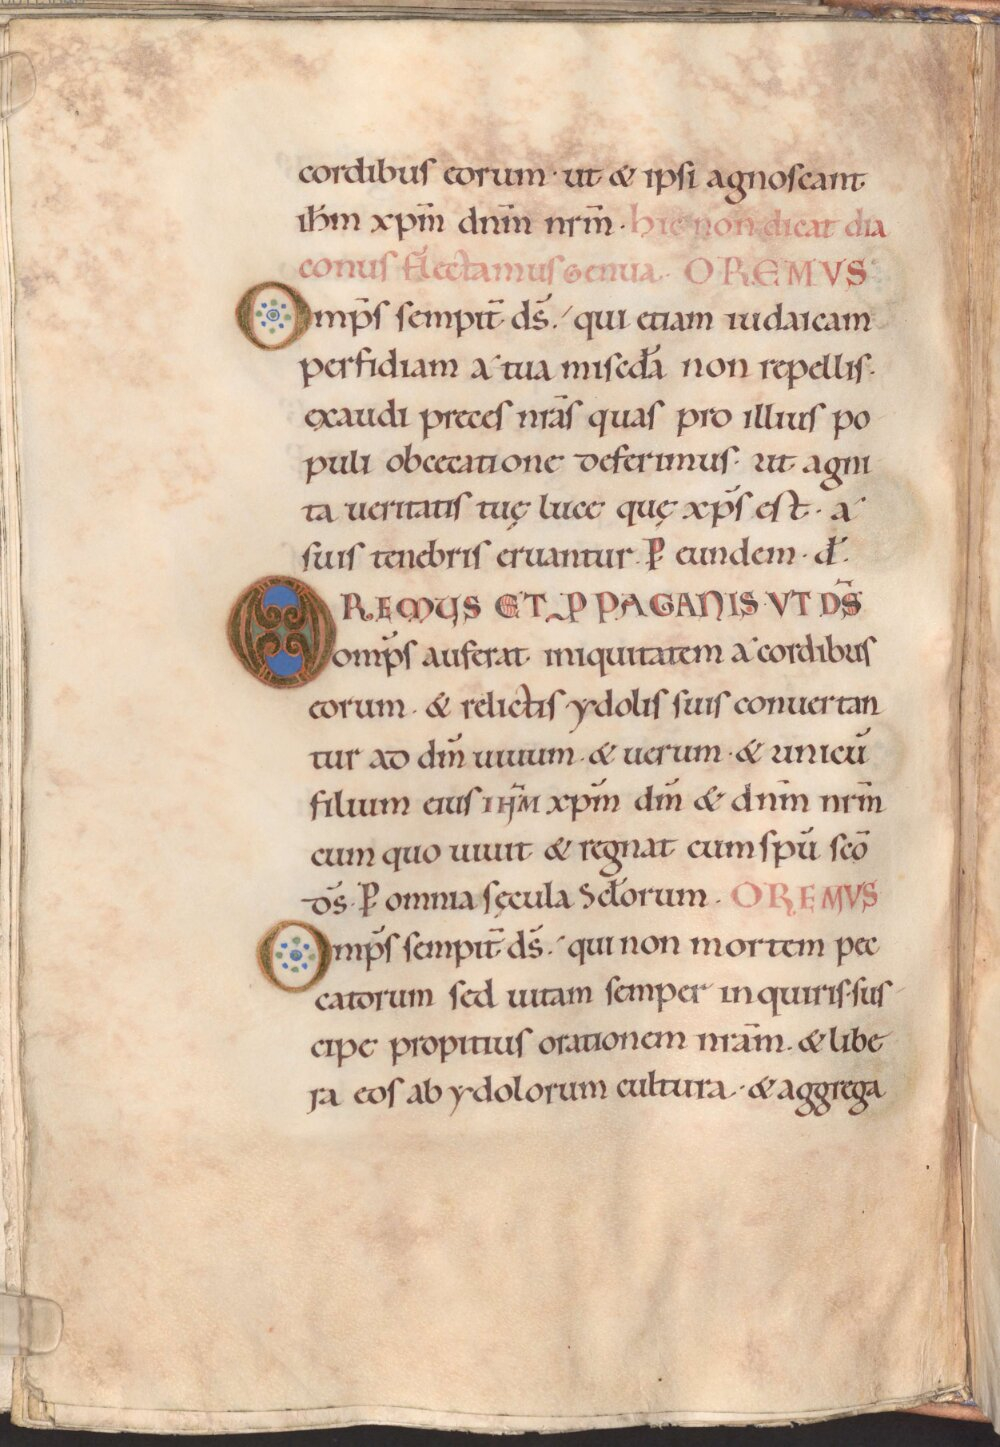 cordibus eorum · ut & ipsi agnoscant
ihm̅ xpm̅ dnm̅ nrm̅ · hic non dicat dia
conus flectamus genua. OREMVS
Omp̅s sempit̅ ds̅. qui etiam iudaicam
perfidiam a tua misedā non repellis.
exaudi preces nrās quas pro illius po
puli obcecatione deferimus · ut agni
ta ueritatis tuę luce quę xp̅s est · a
suis tenebris eruantur. P̱ eundem · đ.
OREMUS ET P PAGANIS VT DS̅
omp̅s auferat iniquitatem a cordibus
eorum · & relictis ydolis suis conuertan
tur ad dm̅ uiuum · & uerum · & unicū
filium eius IHM̅ xpm̅ dm̅ & dnm̅ nrm̅
cum quo uiuit & regnat cum spū scō
ds̅. P̱ omnia sęcula sclorum. OREMVS
Omp̅s sempit̅ ds̅. qui non mortem pec
catorum sed uitam semper inquiris · sus
cipe propitius orationem nrām. & libe
ra eos ab ydolorum cultura · & aggrega